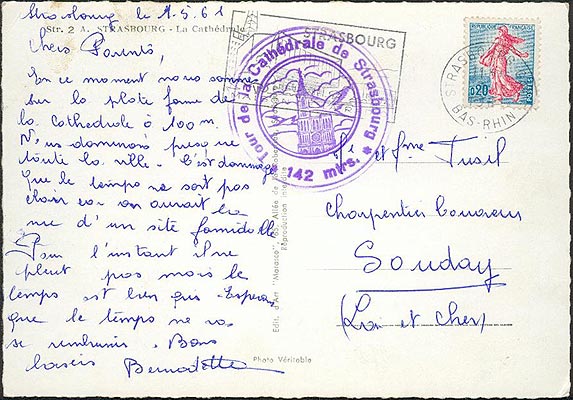 Strasbourg le 1.5.61
Str. 2 A. STRASBOURG - La Cathédrale
Chers Parents,
En ce moment nous sommes
sur la plate forme de
la Cathédrale à 100 m.
Nous dominons presque
toute la ville. C'est dommage
que le temps ne soit pas
clair car on aurait la
vue d'un site
Pour l'instant il ne
pleut pas mais le
temps est bien gris. Espérons
que le temps ne va
se rembrunir. Bons
baisers Bernadette
STRASBOURG
Tour de la Cathédrale de Strasbourg
* 142 mtrs. *
REPUBLIQUE FRANÇAISE
0,20
POSTES
STRASBOURG
BAS-RHIN
Edit. d'Art "Marasco", 65, Allée de
Reproduction interdite
Photo Véritable
Mr et Mme Fusil
Charpentier Couvreur
Souday
(Loir et Cher)